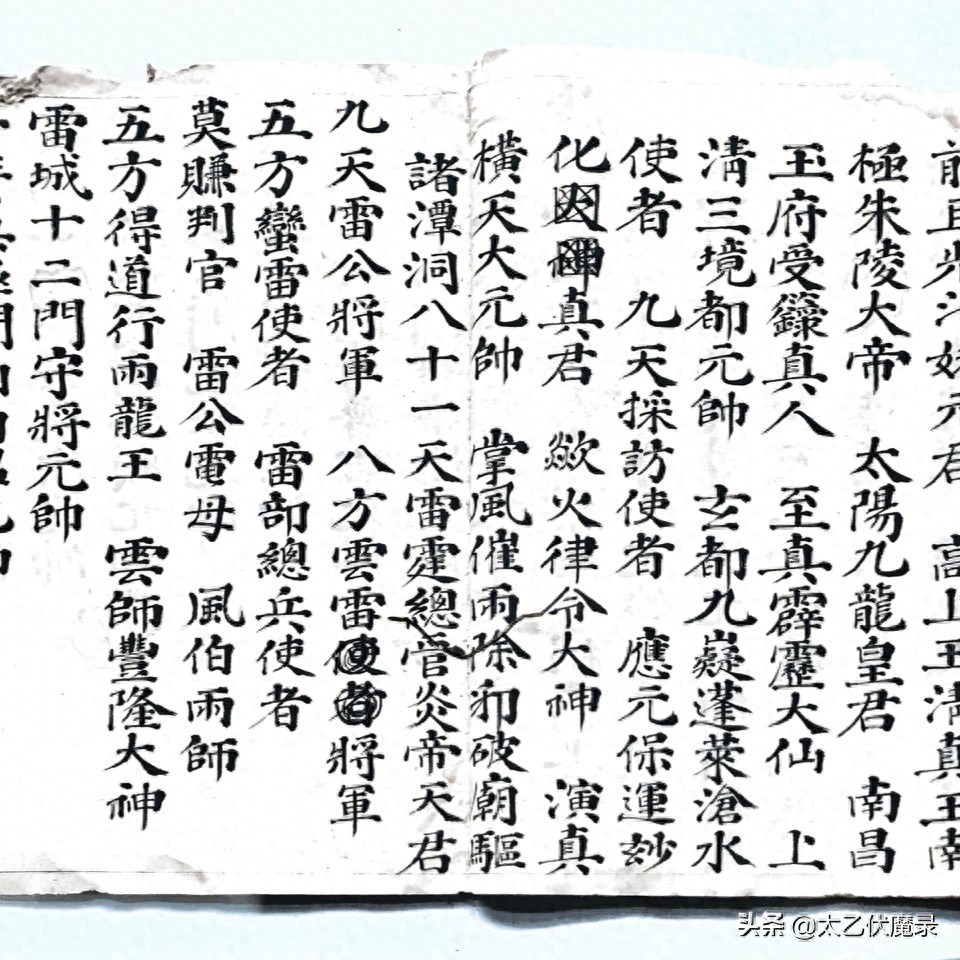 元君 高上玉清真王南
極朱陵大帝 太陽九龍皇君 南昌
玉府受籙真人 至真霹靂大仙 上
清三境都元帥 玄都九嶷蓬萊滄水
使者 九天採訪使者 應元保運玅
化真君 歘火律令大神 演真
橫天大元帥 掌風催雨除破廟驅
諸潭洞八十一天雷霆總管炎帝天君
九天雷公將軍 八方雲雷使者將軍
五方蠻雷使者 雷部總兵使者
莫賺判官 雷公電母 風伯雨師
五方得道行雨龍王 雲師豐隆大神
雷城十二門守將元帥
头条 @太乙伏魔录